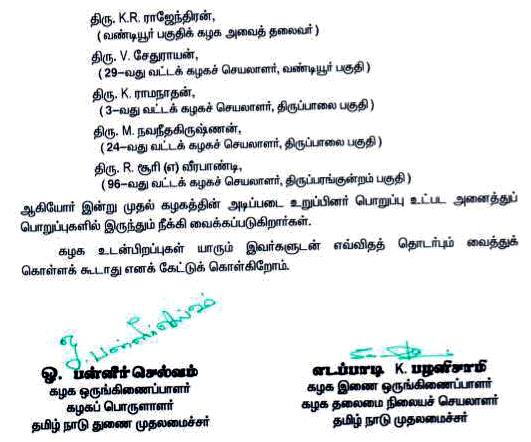 திரு. K.R. ராஜேந்திரன்,
( வண்டியூர் பகுதிக் கழக அவைத் தலைவர் )
திரு. V. சேதுராயன்,
( 29–வது வட்டக் கழகச் செயலாளர், வண்டியூர் பகுதி )
திரு. K. ராமநாதன்,
( 3–வது வட்டக் கழகச் செயலாளர், திருப்பாலை பகுதி )
திரு. M. நவநீதகிருஷ்ணன்,
( 24–வது வட்டக் கழகச் செயலாளர், திருப்பாலை பகுதி )
திரு. R. சூரி (எ) வீரபாண்டி,
( 96–வது வட்டக் கழகச் செயலாளர், திருப்பரங்குன்றம் பகுதி )
ஆகியோர் இன்று முதல் கழகத்தின் அடிப்படை உறுப்பினர் பொறுப்பு உட்பட அனைத்துப்
பொறுப்புகளில் இருந்தும் நீக்கி வைக்கப்படுகிறார்கள்.
கழக உடன்பிறப்புகள் யாரும் இவர்களுடன் எவ்விதத் தொடர்பும் வைத்துக்
கொள்ளக் கூடாது எனக் கேட்டுக் கொள்கிறோம்.
ஓ. பன்னீர்செல்வம்
ஓ. பன்னீர் செல்வம்
கழக ஒருங்கிணைப்பாளர்
கழகப் பொருளாளர்
தமிழ் நாடு துணை முதலமைச்சர்
எடப்பாடி K. பழனிசாமி
கழக இணை ஒருங்கிணைப்பாளர்
கழக தலைமை நிலையச் செயலாளர்
தமிழ் நாடு முதலமைச்சர்